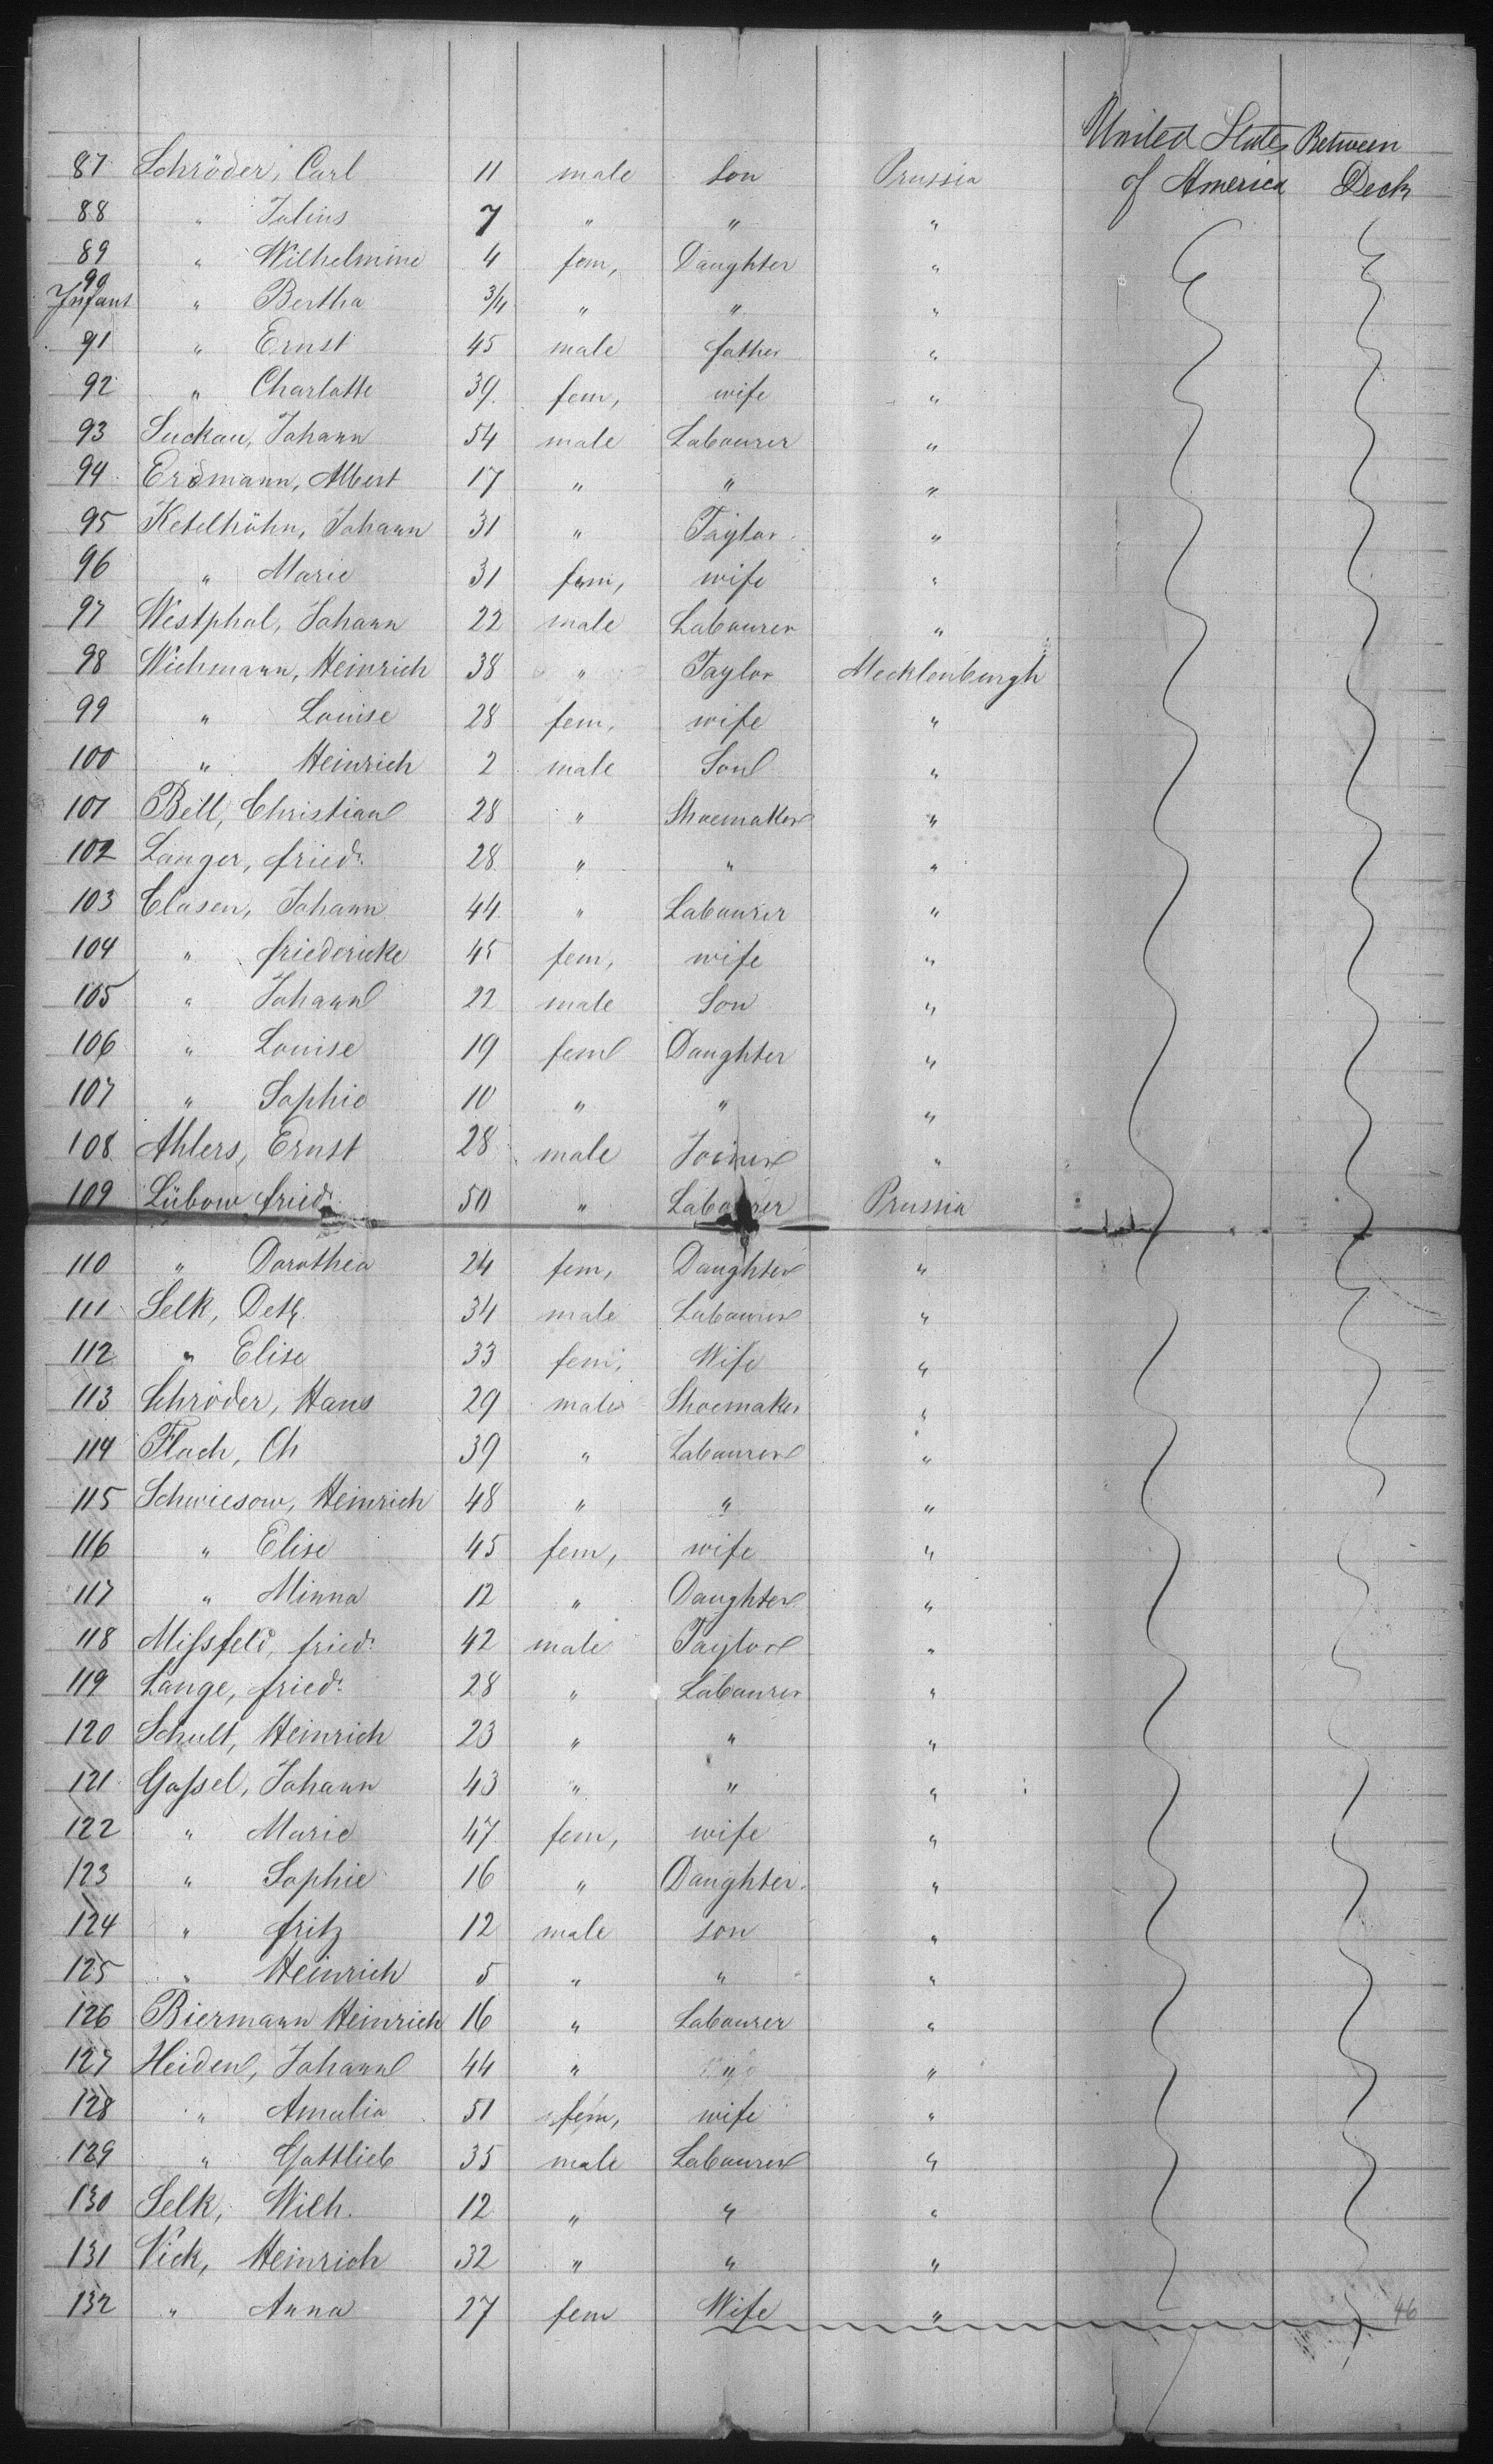 United States Between
87 Schröder, Carl 11 male son Prussia of America Deck
88 " Julius 7 " " "
89 " Wilhelmine 4 fem, Daughter "
90
Infant " Bertha 3/4 " " "
91 " Ernst 45 male father "
92 " Charlotte 39 fem, wife "
93 Suckau, Johann 54 male Labourer "
94 Erdmann, Albert 17 " " "
95 Ketelhöhn, Johann 31 " Taylor "
96 " Marie 31 fem, wife "
97 Westphal, Johann 22 male Labourer "
98 Wichmann, Heinrich 38 " Taylor Mecklenburgh
99 " Louise 28 fem, wife "
100 " Heinrich 2 male Son "
101 Bell, Christian 28 " Shoemaker "
102 Langer, friedr. 28 " " "
103 Clasen, Johann 44 " Labourer "
104 " friedericke 45 fem, wife "
105 " Johann 22 male Son "
106 " Louise 19 fem Daughter "
107 " Sophie 10 " " "
108 Ahlers, Ernst 28 male Joiner "
109 Lübow, friedr. 50 " Labourer Prussia
110 " Dorothea 24 fem, Daughter "
111 Selk, 34 male Labourer "
112 " Elise 33 fem, Wife "
113 Schröder, Hans 29 male Shoemaker "
114 Flach, Ch 39 " Labourer "
115 Schwiesow, Heinrich 48 " " "
116 " Elise 45 fem, wife "
117 " Minna 12 " Daughter "
118 Missfeld, friedr. 42 male Taylor "
119 Lange, friedr. 28 " Labourer "
120 Schult, Heinrich 23 " " "
121 Gassel, Johann 43 " " "
122 " Marie 47 fem, wife "
123 " Sophie 16 " Daughter "
124 " fritz 12 male son "
125 " Heinrich 5 " " "
126 Biermann Heinrich 16 " Labourer "
127 Heiden, Johann 44 " " "
128 " Amalia 51 fem, wife "
129 " Gottlieb 35 male Labourer "
130 Selk, Wilh. 12 " " "
131 Vick, Heinrich 32 " " "
132 " Anna 27 fem Wife " 46